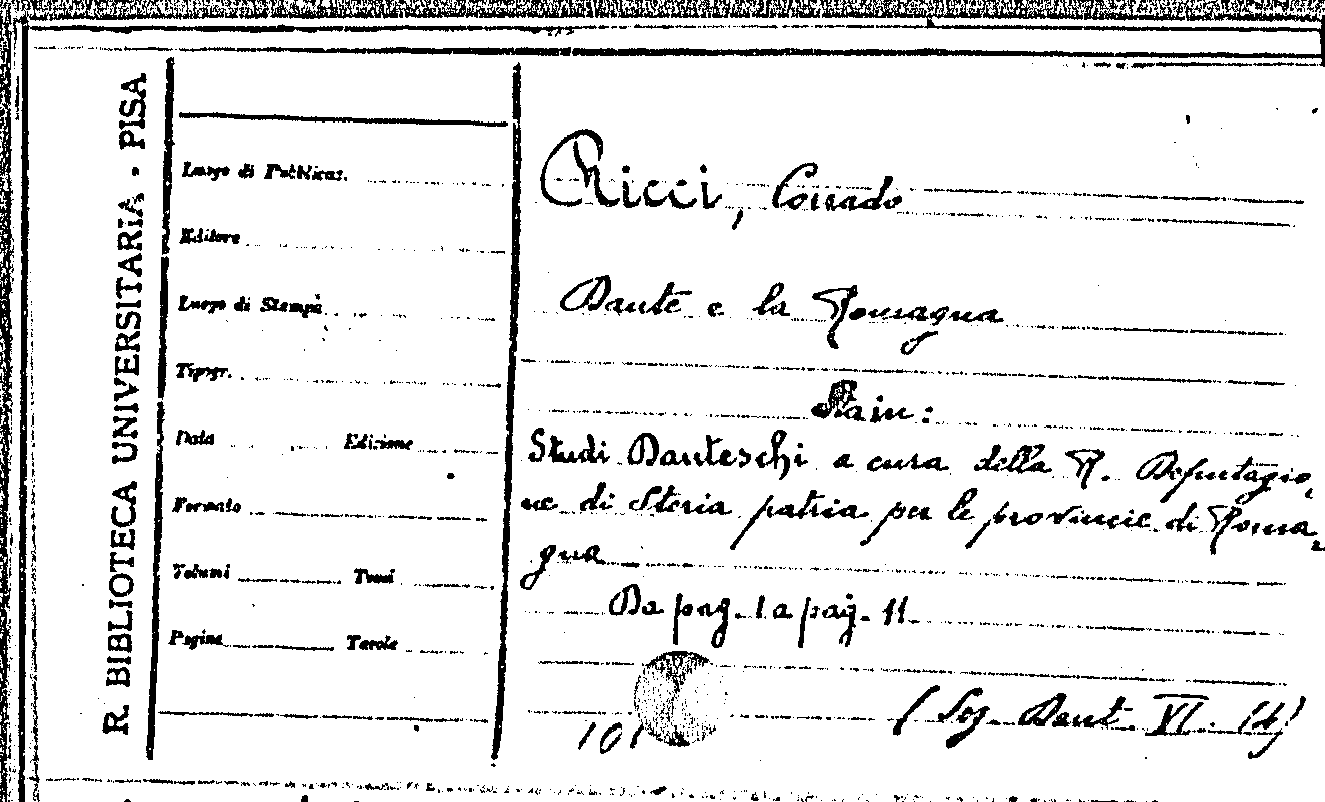 R. BIBLIOTECA UNIVERSITARIA - PISA
Luogo di Pubblicaz.
Editore
Luogo di Stampa
Tipogr.
Data Edizione
Formato
Volumi Tomi
Pagine Tavole
Ricci, Corrado
Dante e la Romagna
in:
Studi Danteschi a cura della R. Deputazio-
ne di Storia patria per le provincie di Roma-
gna
Da pag. 1 a pag. 11.
101
( Dant. VI. 14)